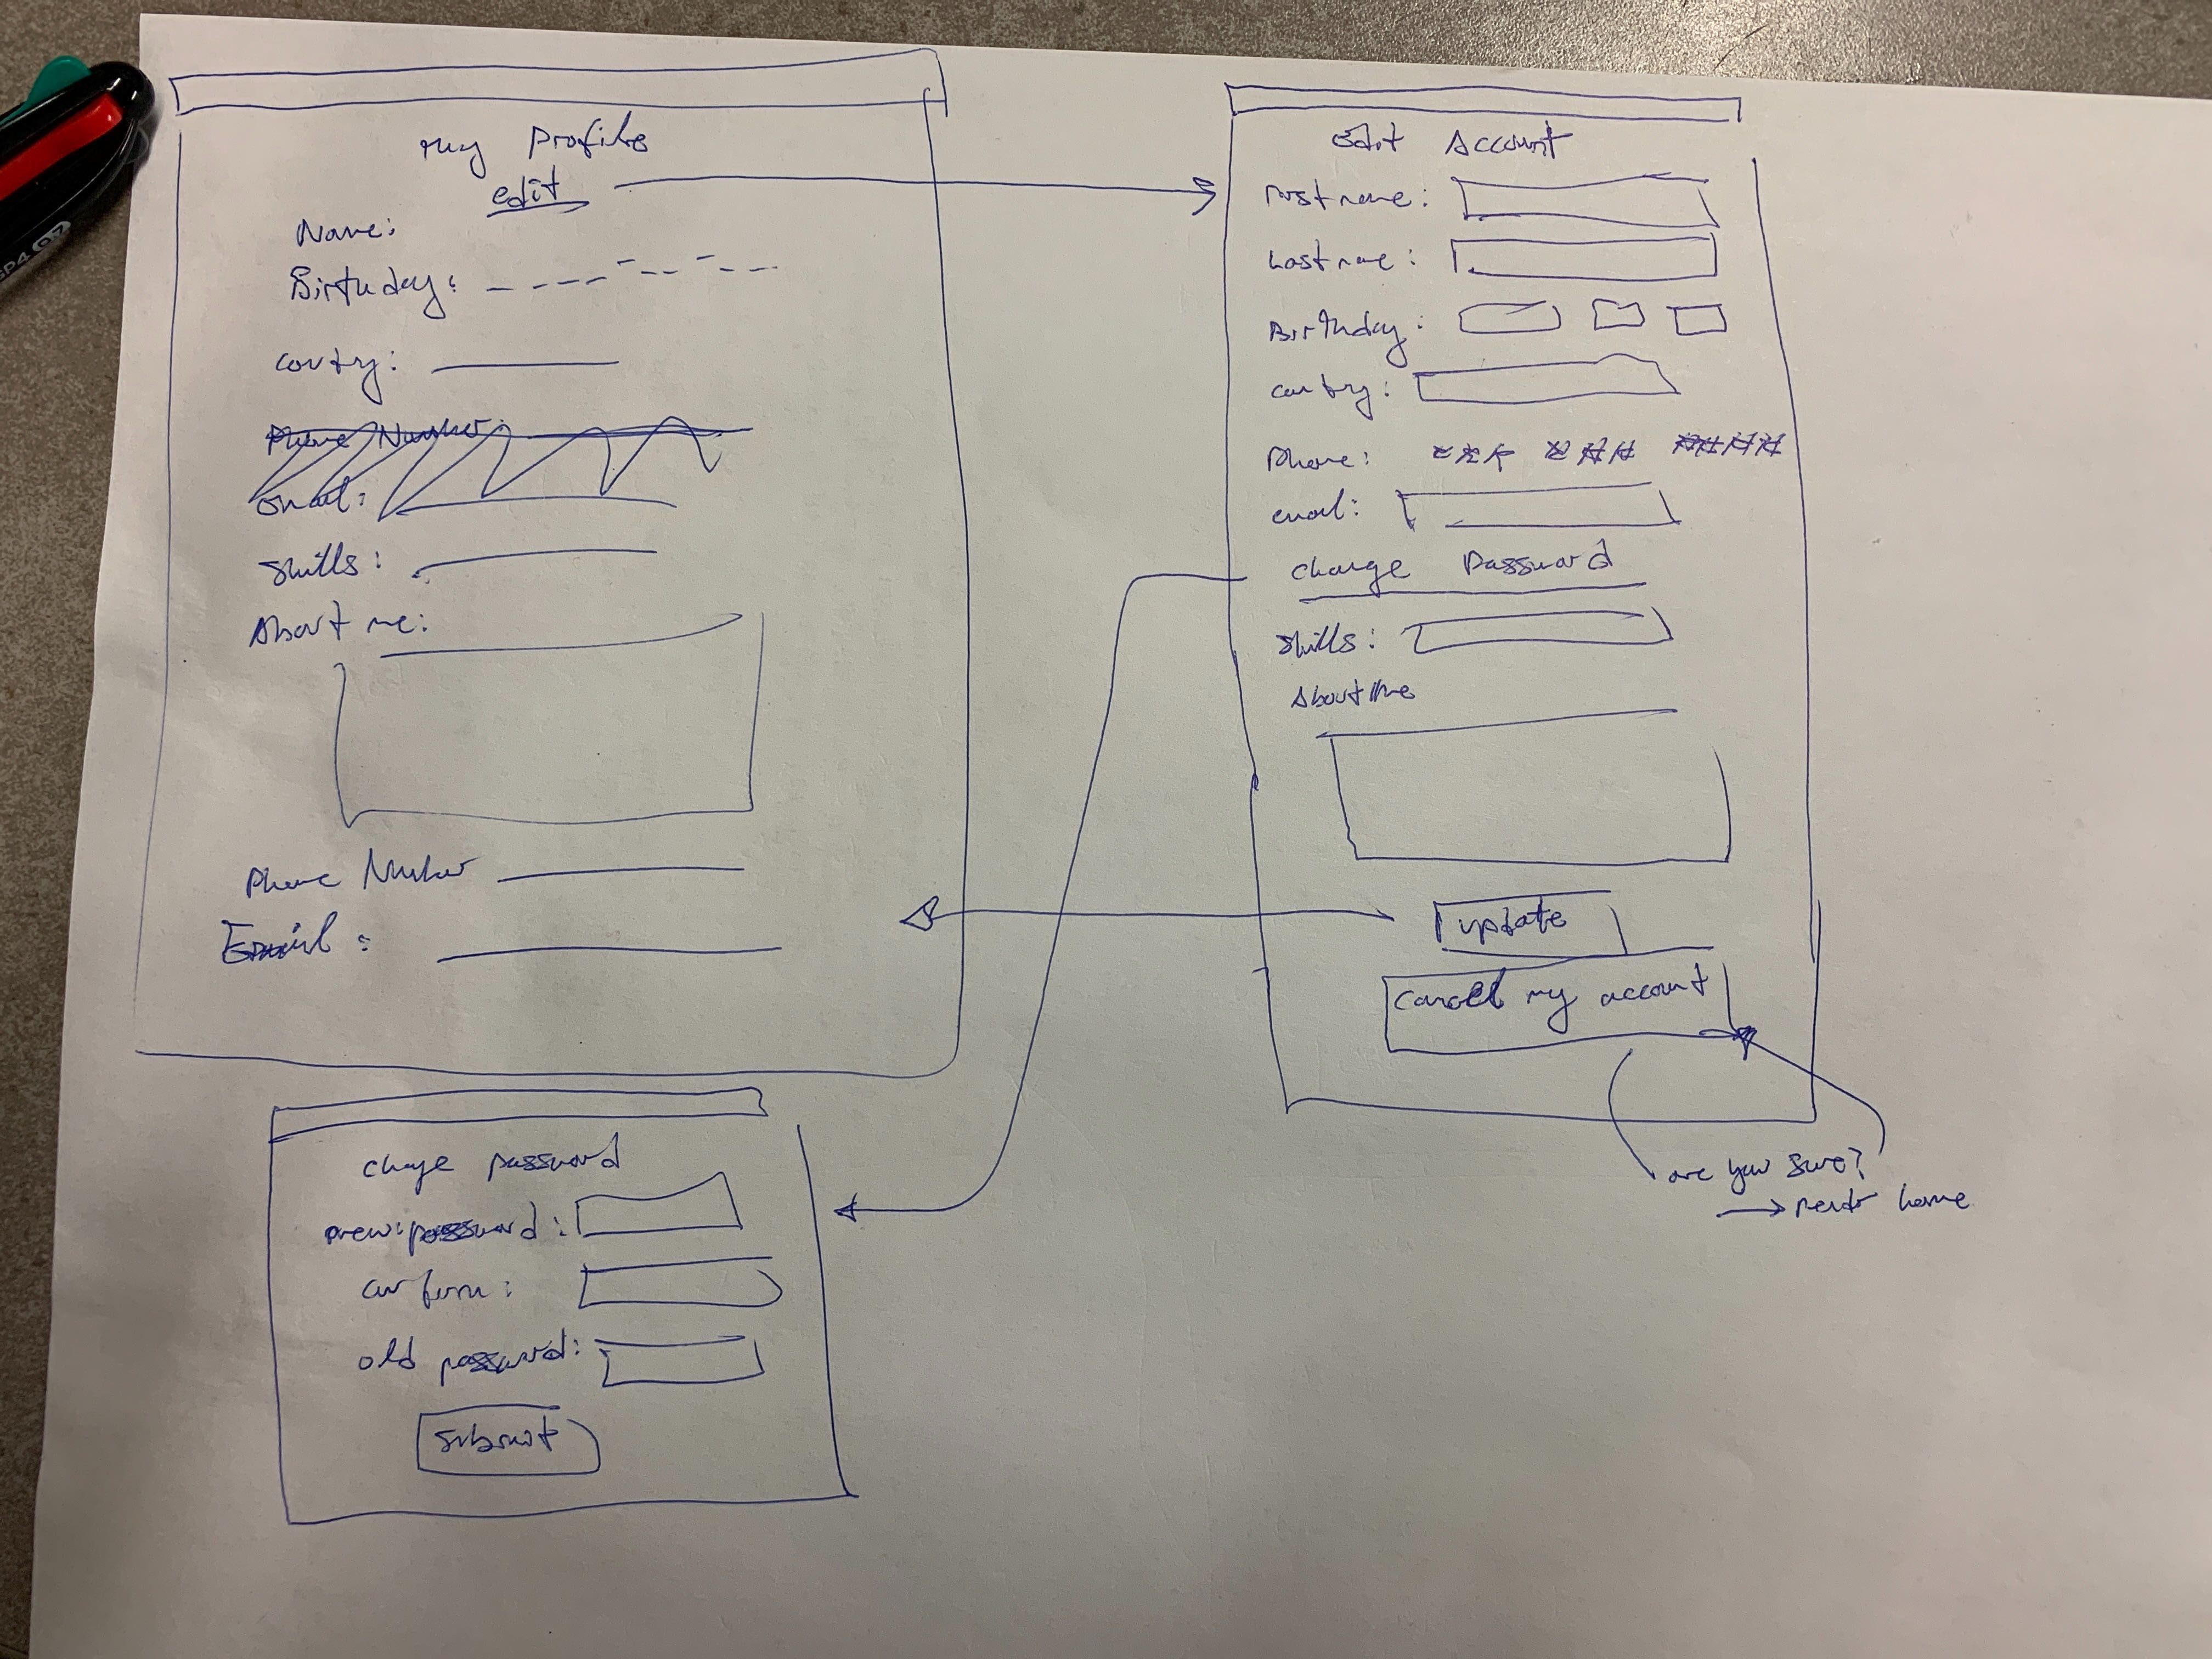 My Profile
edit
Name:
Birthday:
Country:
Phone Number:
Email:
Skills:
About me:
Phone Number
Email:
Edit Account
First name:
Last name:
Birthday:
Country:
Phone: ### ### ####
email:
Change Password
Skills:
About Me
update
Cancel my account
are you sure?
→ home
change password
new password:
confirm:
old password:
submit